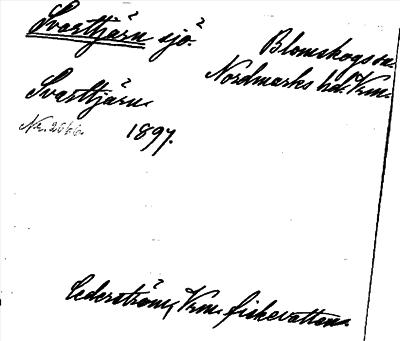 Svarttjärn sjö?
Blomskogs sn.
Nordmarks hd. Vrm.
Svarttjärn
1897.
Cederström, Vrm. fiskevatten